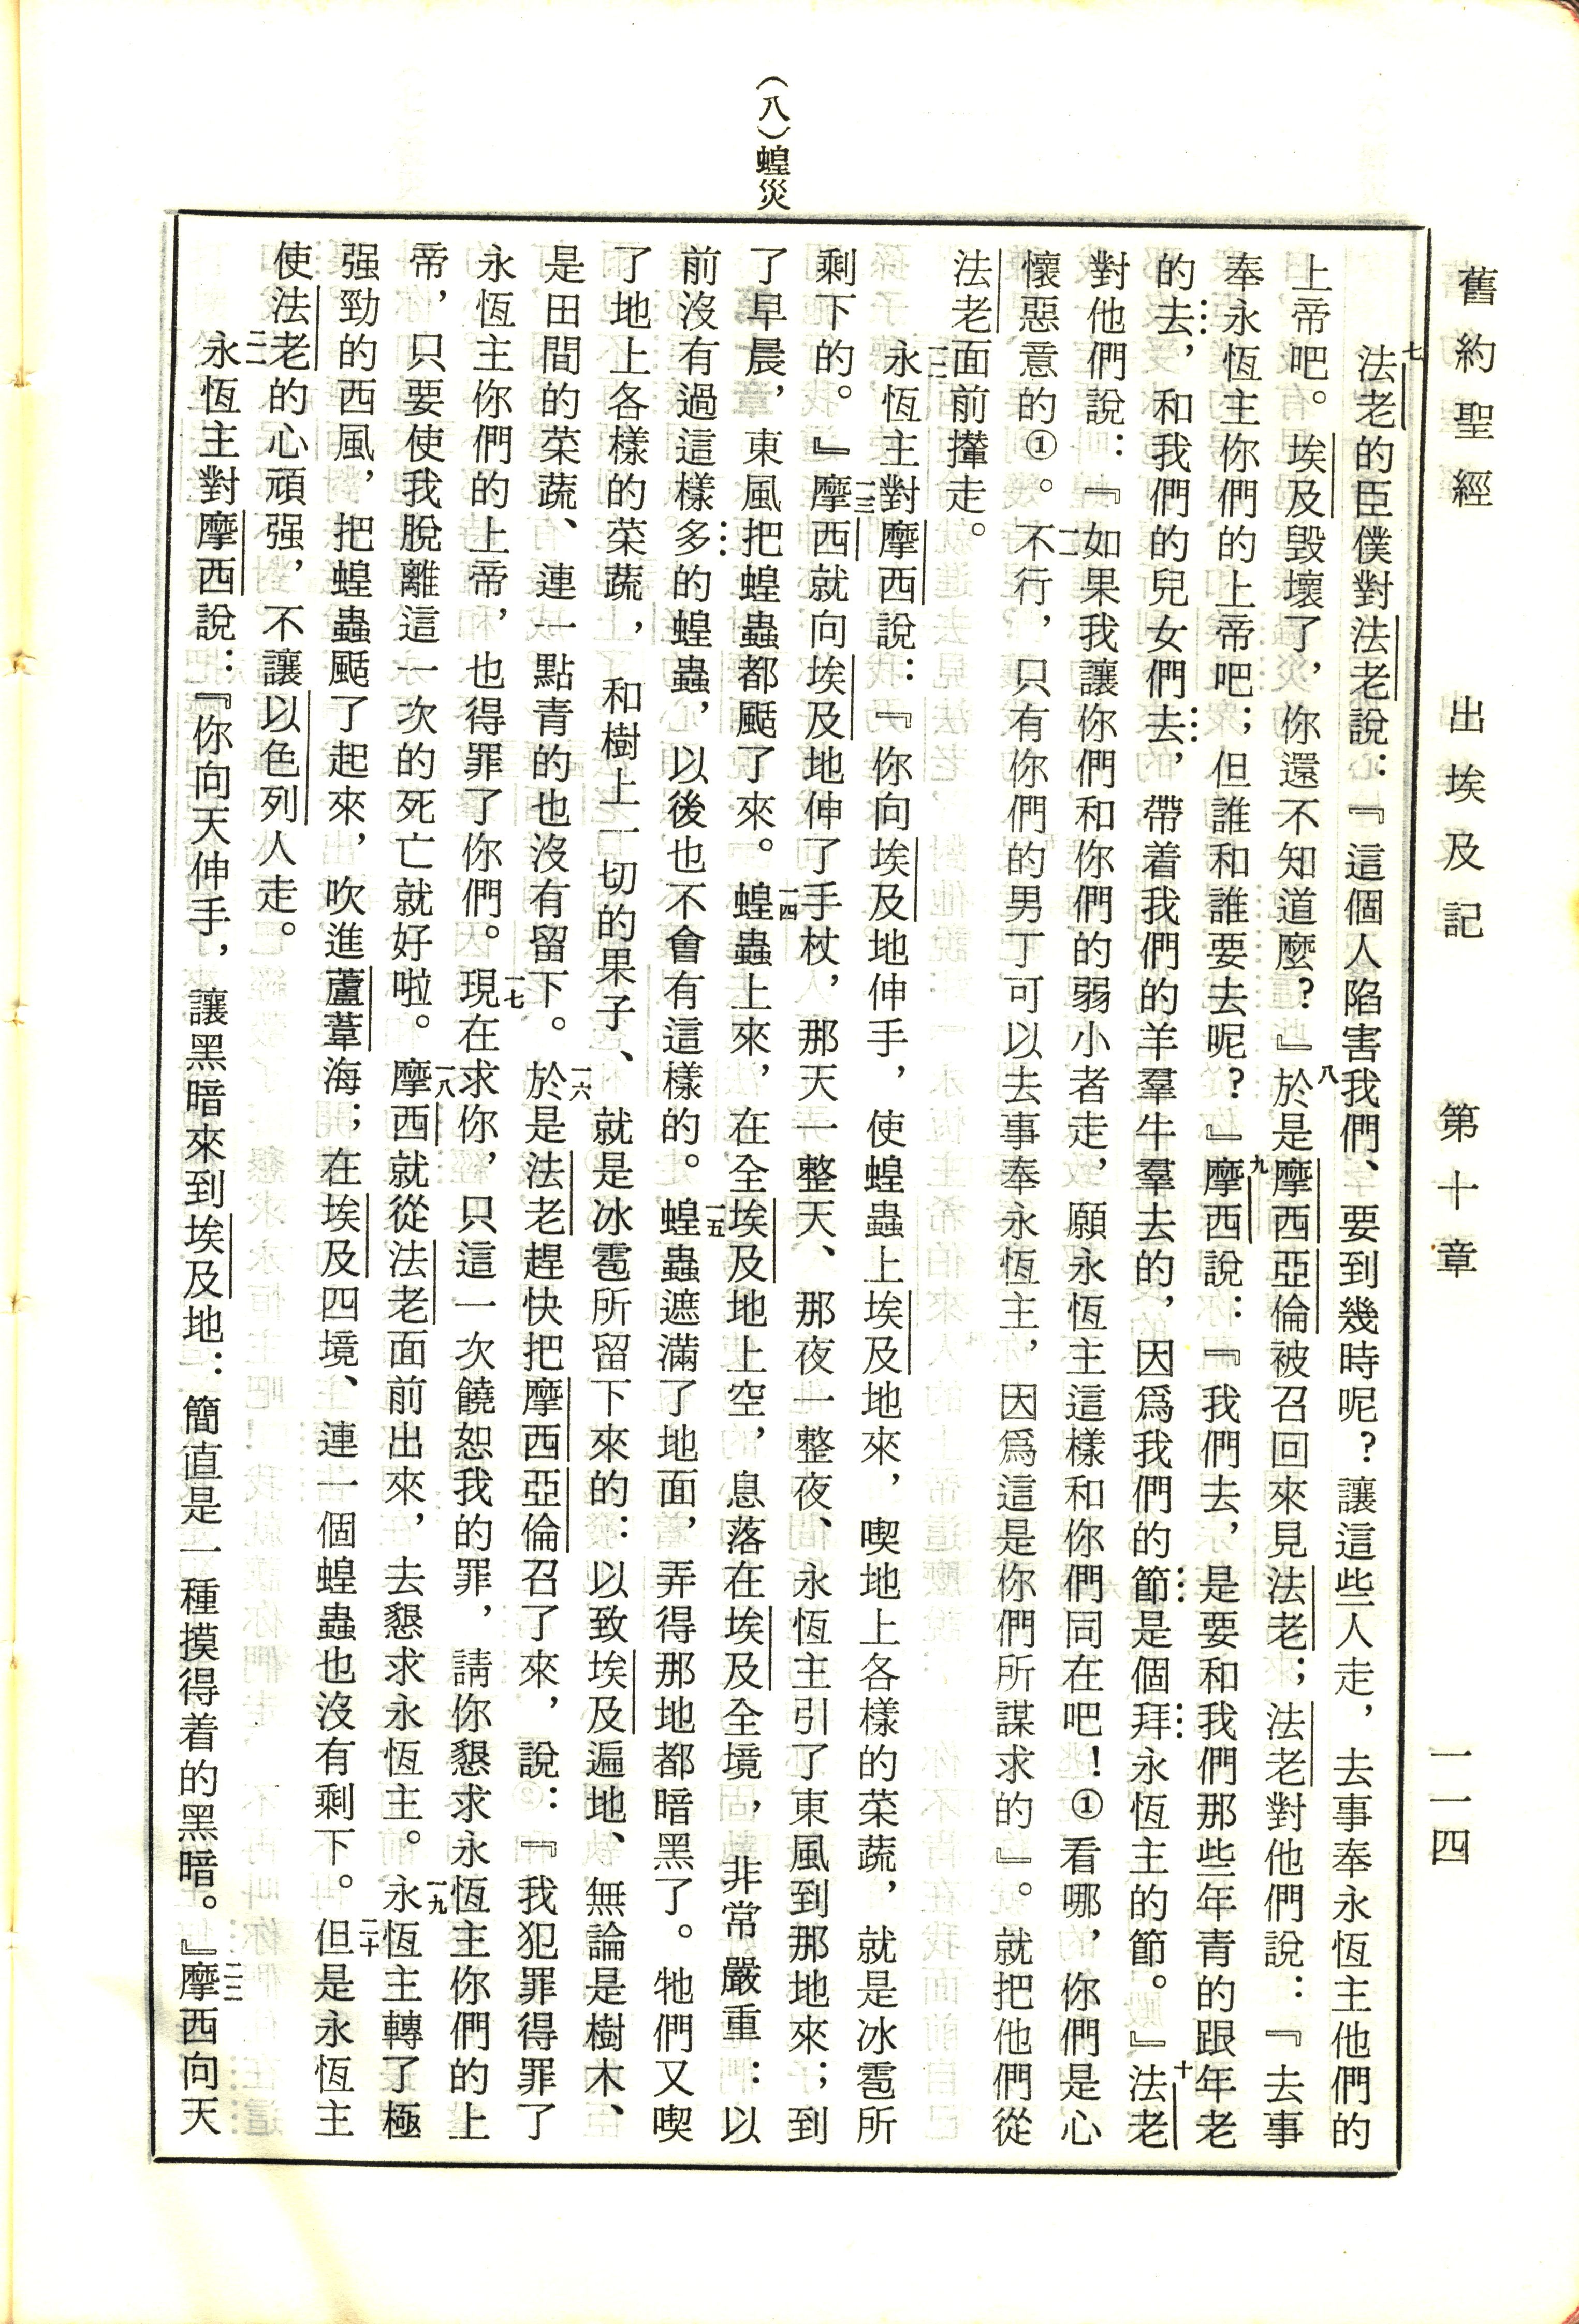 舊約聖經　出埃及記　第十章　一一四
（八）蝗災
七法老的臣僕對法老說：『這個人陷害我們、要到幾時呢？讓這些人走，去事奉永恆主他們的
上帝吧。埃及毀壞了，你還不知道麼？』八於是摩西亞倫被召回來見法老；法老對他們說：『去事
奉永恆主你們的上帝吧；但誰和誰要去呢？』九摩西說：『我們去，是要和我們那些年青的跟年老
的去，和我們的兒女們去，帶着我們的羊羣牛羣去的，因爲我們的節是個拜永恆主的節。』十法老
對他們說：『如果我讓你們和你們的弱小者走，願永恆主這樣和你們同在吧！①看哪，你們是心
懷惡意的①。一一不行，只有你們的男丁可以去事奉永恆主，因爲這是你們所謀求的』。就把他們從
法老面前攆走。
一二永恆主對摩西說：『你向埃及地伸手，使蝗蟲上埃及地來，喫地上各樣的菜蔬，就是冰雹所
剩下的。』一三摩西就向埃及地伸了手杖，那天一整天、那夜一整夜、永恆主引了東風到那地來；到
了早晨，東風把蝗蟲都颳了來。一四蝗蟲上來，在全埃及地上空，息落在埃及全境，非常嚴重：以
前沒有過這樣多的蝗蟲，以後也不會有這樣的。一五蝗蟲遮滿了地面，弄得那地都暗黑了。牠們又喫
了地上各樣的菜蔬，和樹上一切的果子、就是冰雹所留下來的：以致埃及遍地、無論是樹木、
是田間的菜蔬、連一點青的也沒有留下。一六於是法老趕快把摩西亞倫召了來，說：『我犯罪得罪了
永恆主你們的上帝，也得罪了你們。一七現在求你，只這一次饒恕我的罪，請你懇求永恆主你們的上
帝，只要使我脫離這一次的死亡就好啦。一八摩西就從法老面前出來，去懇求永恆主。一九永恆主轉了極
强勁的西風，把蝗蟲颳了起來，吹進蘆葦海；在埃及四境、連一個蝗蟲也沒有剩下。二十但是永恆主
使法老的心頑强，不讓以色列人走。
二一永恆主對摩西說：『你向天伸手，讓黑暗來到埃及地：簡直是一種摸得着的黑暗。』二二摩西向天